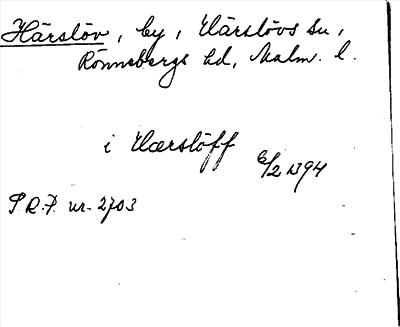 Härslöv, by, Härslövs sn,
Rönnebergs hd, Malm. l.
i Hærslöff
6/2 1394
S R.P. nr. 2703